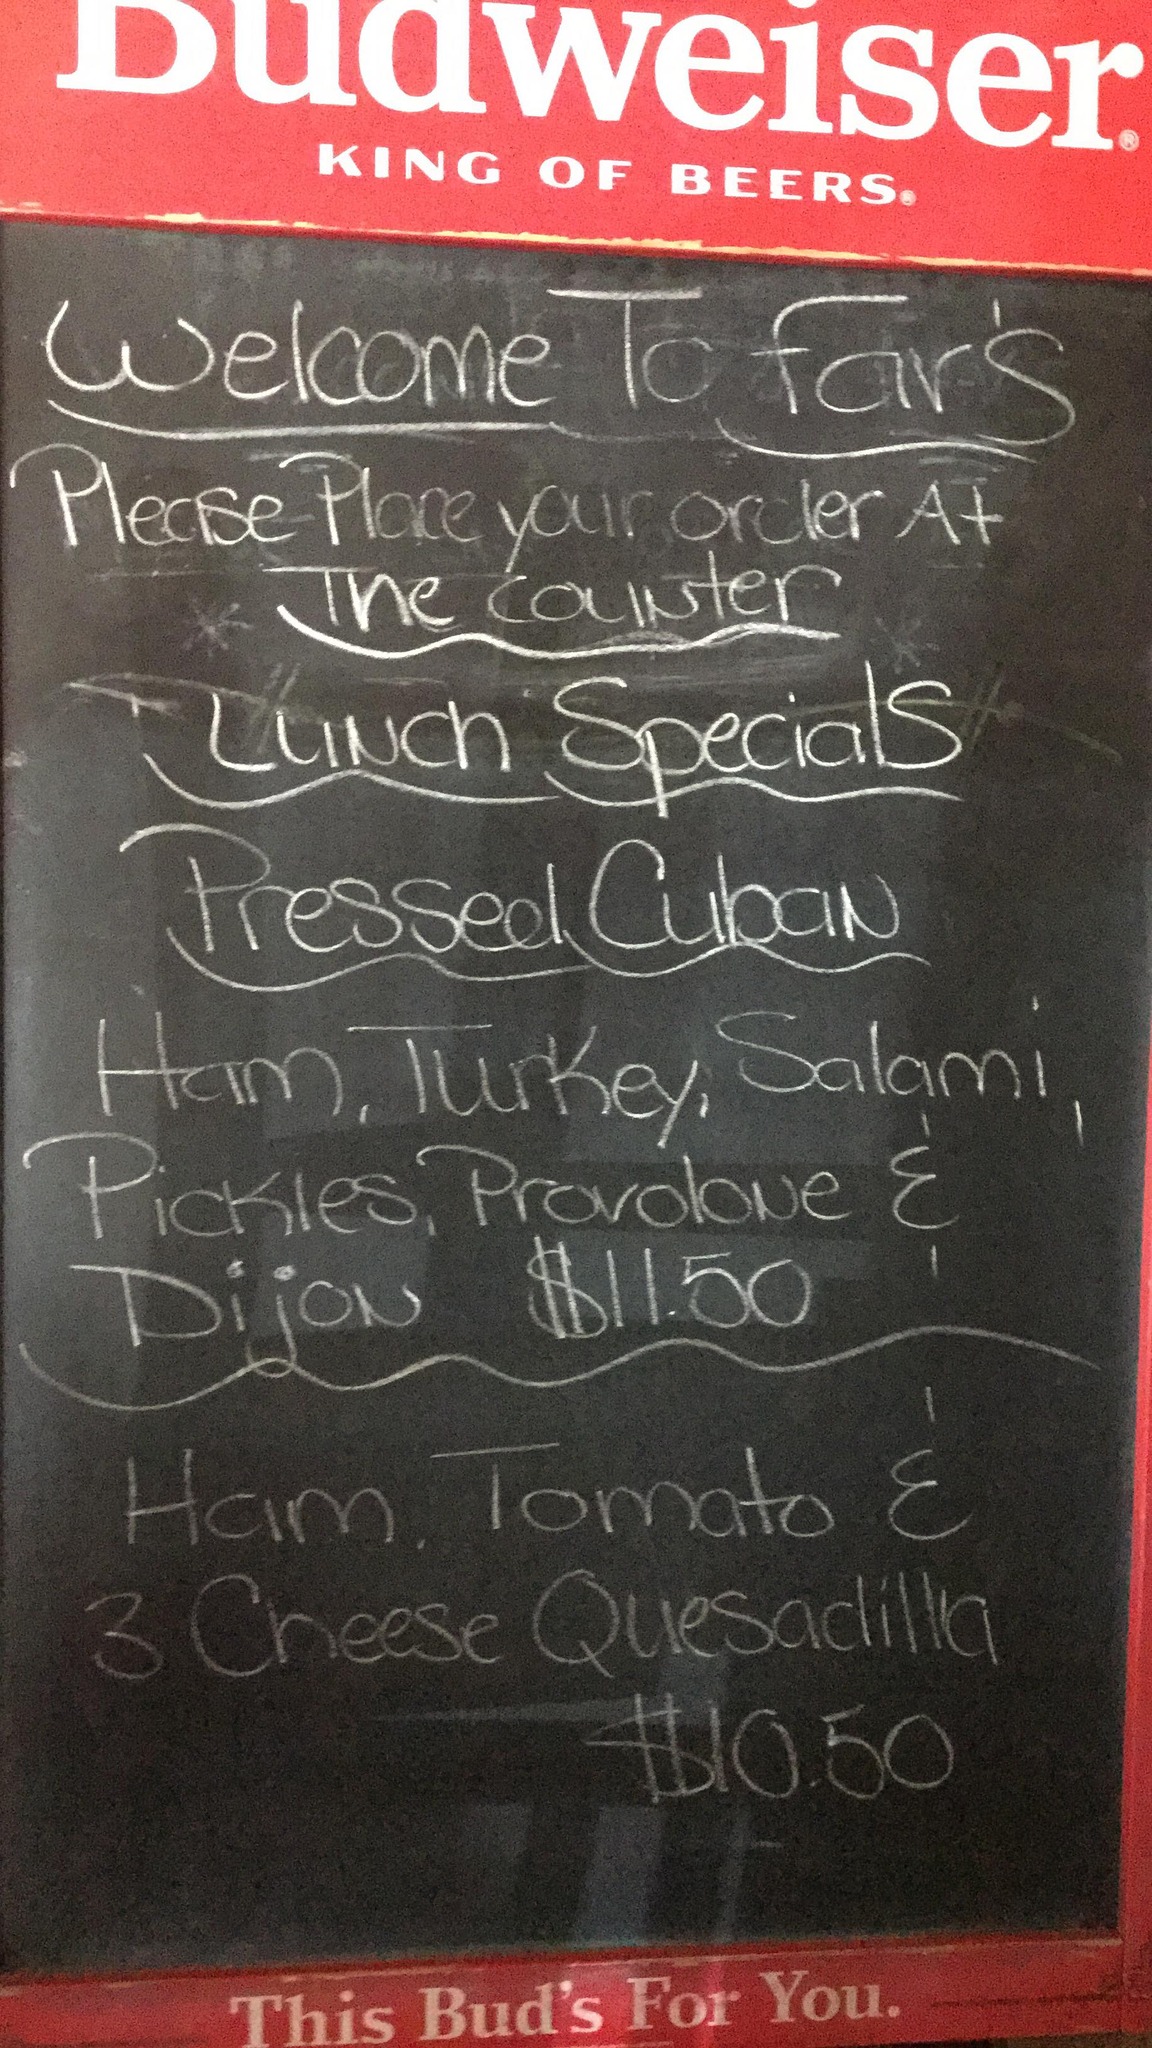 Budweiser®
KING OF BEERS®
Welcome To Fair's
Please Place your order At
The counter
Lunch Specials
Pressed Cuban
Ham, Turkey, Salami,
Pickles, Provolone &
Dijon $11.50
Ham, Tomato &
3 Cheese Quesadilla
$10.50
This Bud's For You.